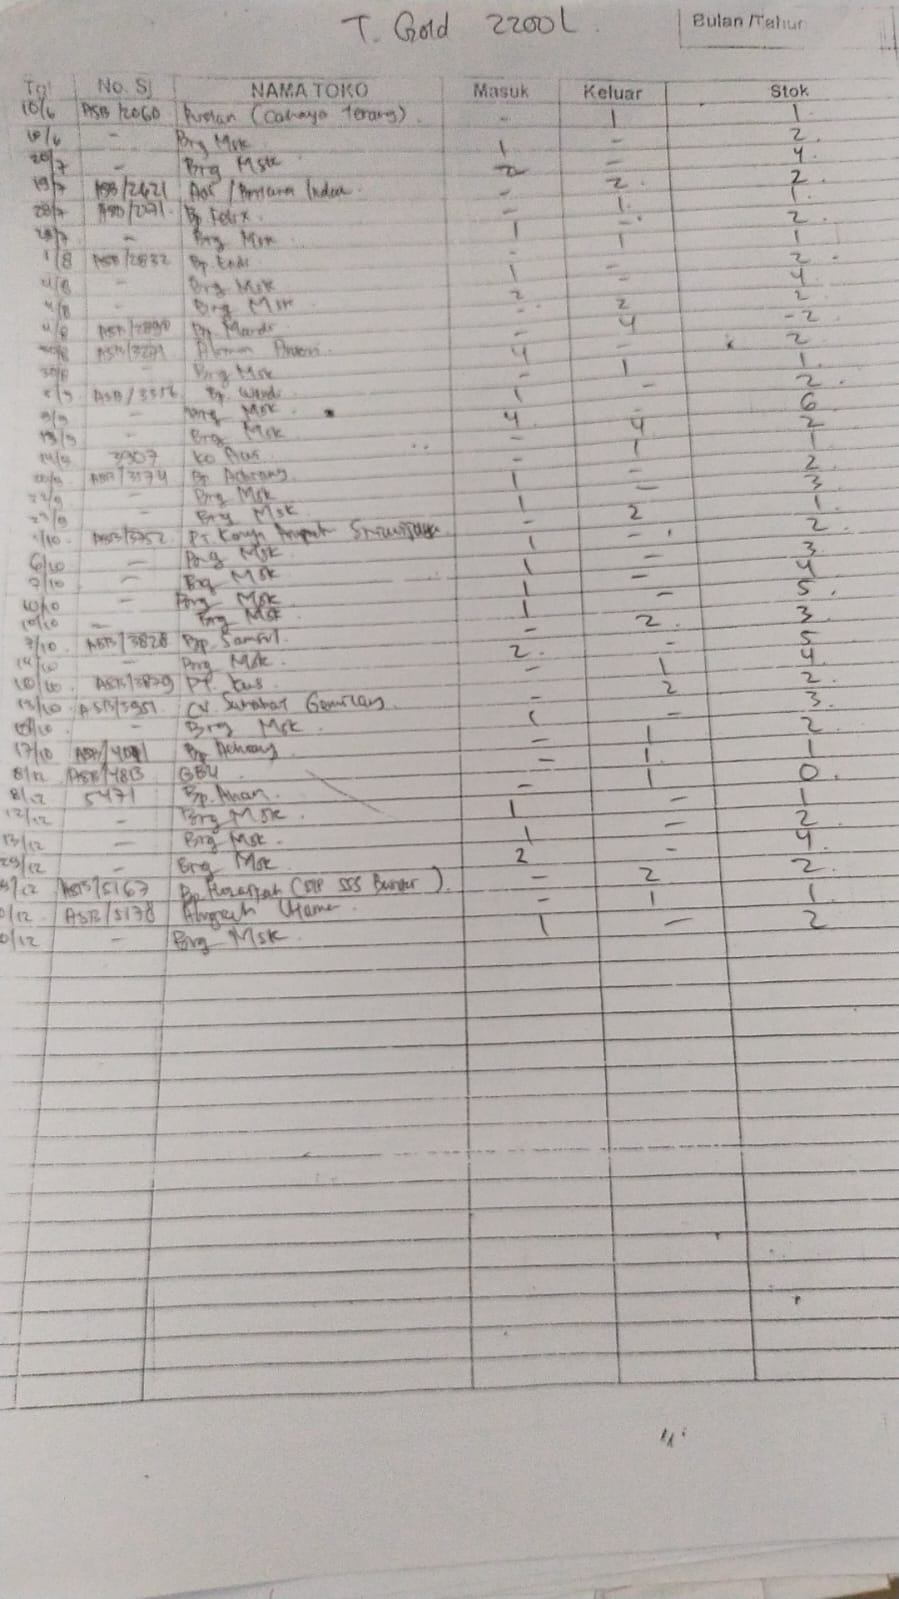 T. Gold 2200L
Bulan /Tahun
Tgl No. Sj NAMA TOKO Masuk Keluar Stok
10/6 ASB/2060 Ruslan (Cahaya Terang). - 1 1
10/6 - Brg Msk 1 - 2
20/7 - Brg Msk 2 - 4
19/7 ASB/2421 - 2 2
28/7 Bp Felix - 1 1
28/7 - Brg Msk 1 - 2
1/8 ASB/2832 Bp. Endi - 1 1
4/8 - Brg Msk 1 - 2
4/8 - Brg Msk 2 - 4
4/8 Bp Mardi - 2 2
ASB/3271 - 4 -2
30/8 - Brg Msk 4 - 2
ASB/3356 Bp. Wandi - 1 1
9/9 - Brg Msk 1 - 2
13/9 - Brg Msk 4 - 6
14/9 3907 Ko - 4 2
ASB/3174 Bp Achiang - 1 1
22/9 - Brg Msk 1 - 2
- Brg Msk 1 - 3
1/10 ASB/3752 PT. - 2 1
6/10 - Brg Msk 1 - 2
7/10 - Brg Msk 1 - 3
10/10 - Brg Msk 1 - 4
10/10 - Brg Msk 1 - 5
7/10 ASB/3828 Bp. - 2 3
14/10 - Brg Msk. 2 - 5
10/10 ASB/3879 PT. Kus - 1 4
13/10 ASB/3951 CV. Sahabat Gemilang - 2 2
- Brg Msk 1 - 3
17/10 Bp Achiang - 1 2
8/12 ASB/4813 GBU - 1 1
8/12 5471 Bp. Ahan. - 1 0
12/12 - Brg Msk. 1 - 1
13/12 - Brg Msk. 1 - 2
29/12 - Brg Msk 2 - 4
/12 ASB/5167 Bp - 2 2
0/12 ASB/5178 Utama - 1 1
0/12 - Brg Msk. 1 - 2